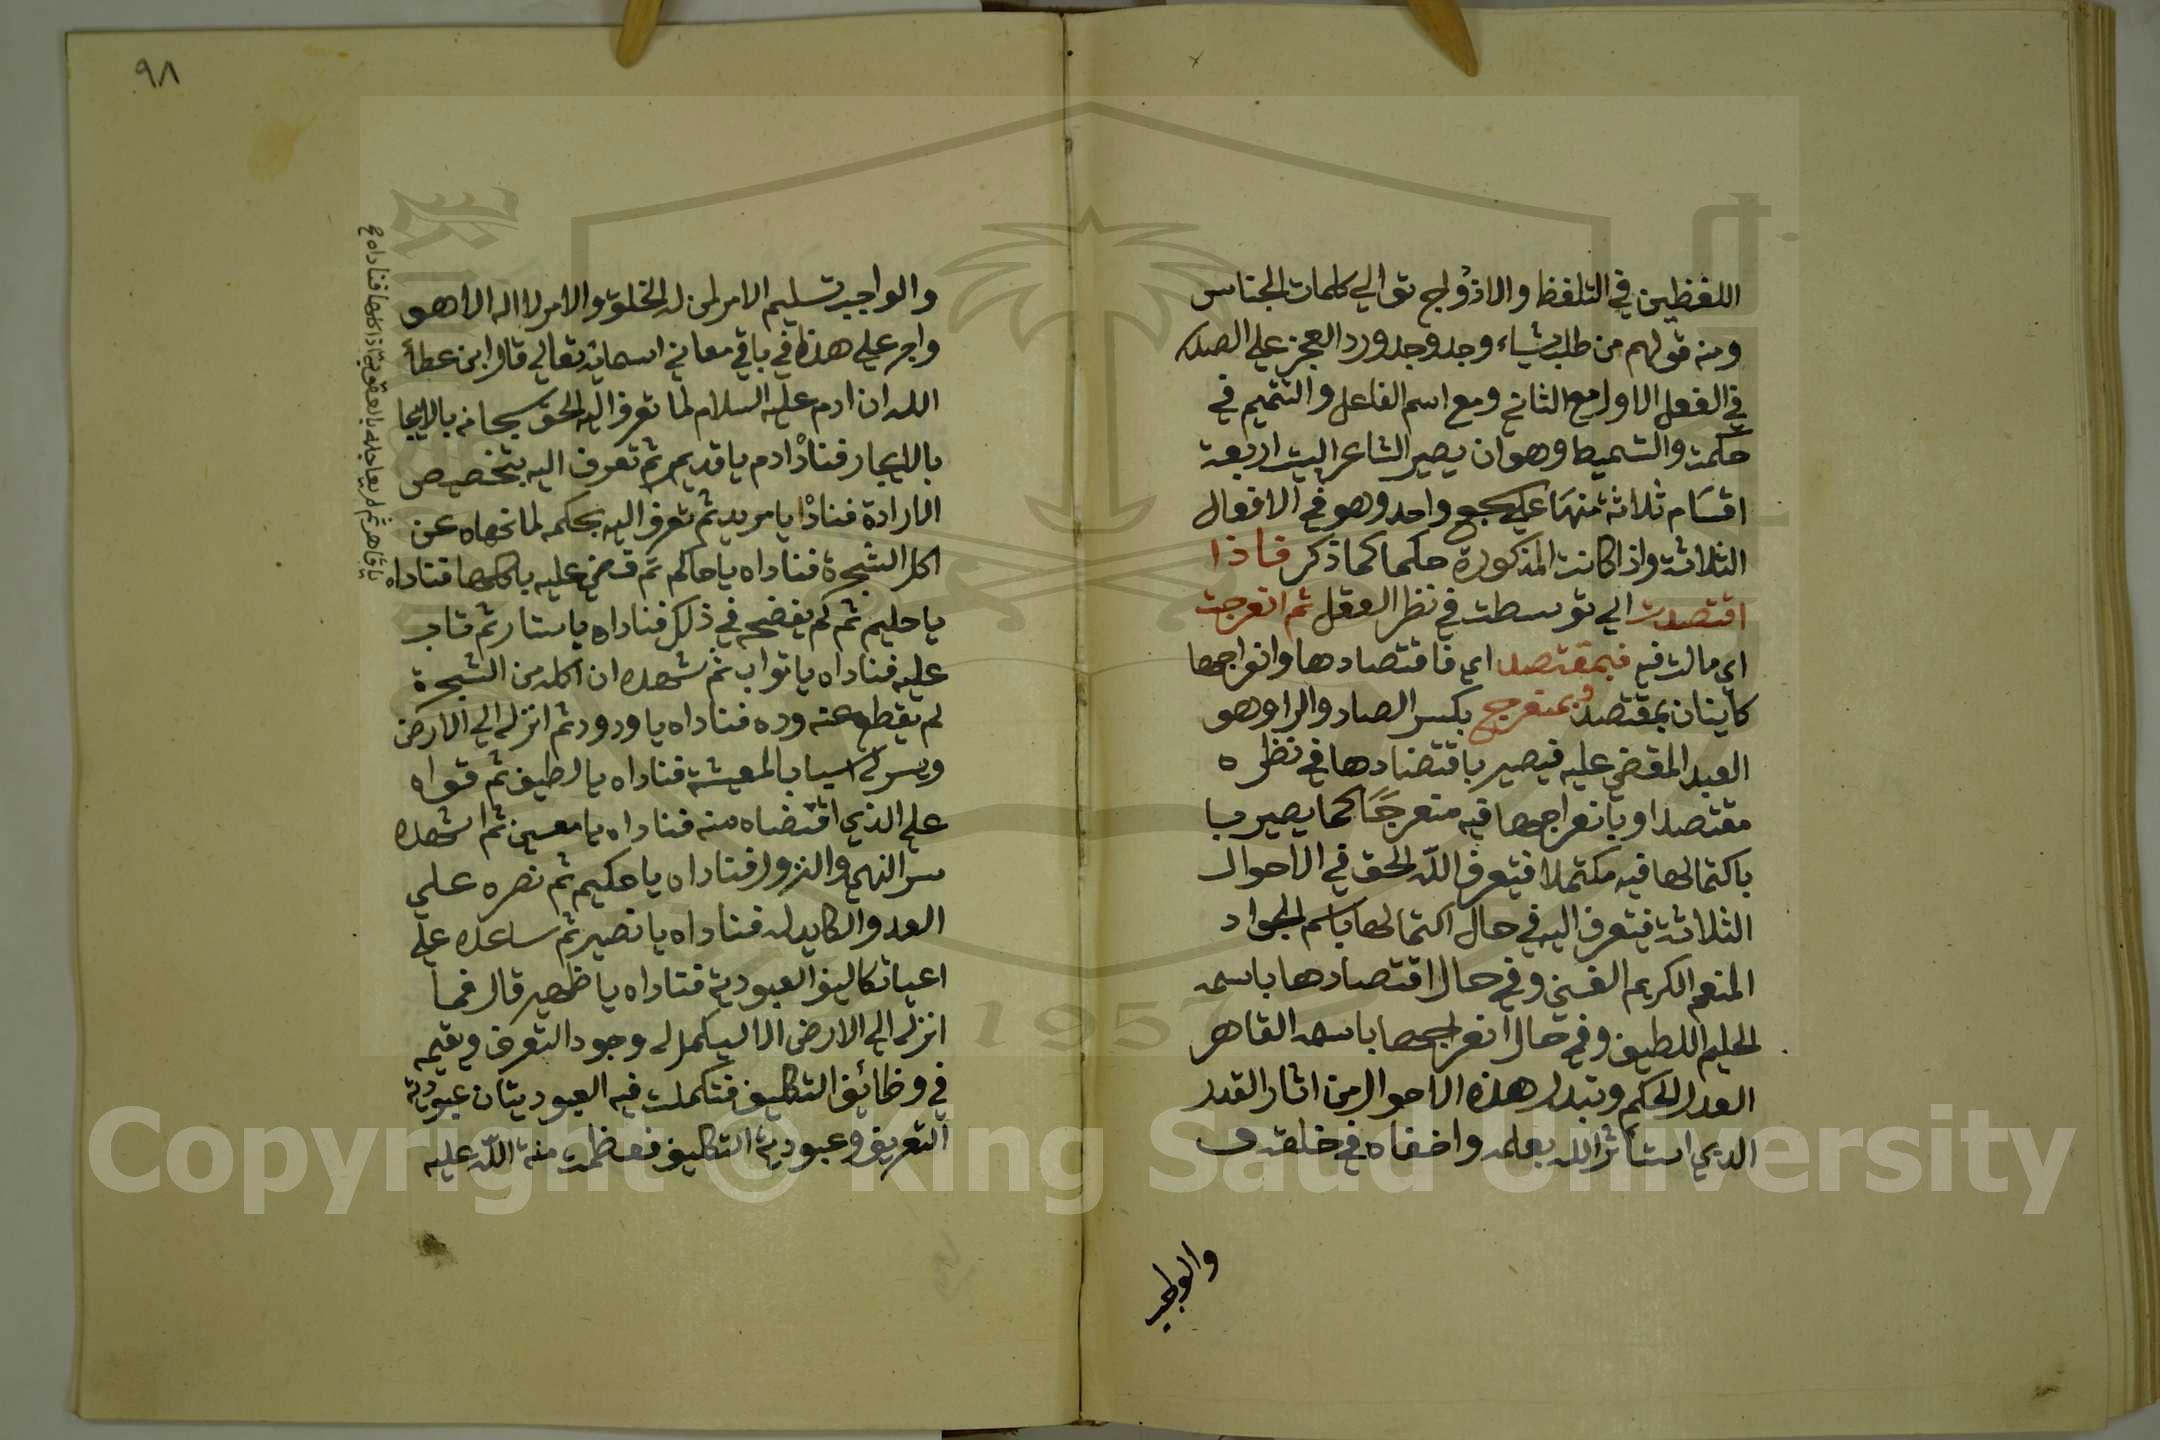 اللفظين في التلفظ والازدواج توالي كلمات الجناس
ومنه قولهم من طلب شياء وجد وجد ورد العجز علي الصدر
في الفعل الاول مع الثاني ومع اسم الفاعل والتتميم في
حكمت والتسميط وهو ان يصير الشاعر البيت اربعة
اقسام ثلاثة منها علي سجع واحد وهو في الافعال
الثلاثة واذا كانت المذكورة حكما كما ذكر فاذا
اقتصدت الي توسطت في نظر العقل ثم انعرجت
اي مالت فيه فبمقتصد اي فاقتصادها وانعراجها
كاينان بمقتصد وبمنعرج بكسر الصاد والرا وهو
العبد المقضي عليه فيصير باقتصادها في نظره
مقتصدا وبانعراجها فيه منعرجا كما يصير
باكتمالها فيه مكتملا فيتعرف اللّه الحق في الاحوال
الثلاثة فيتعرف اليه في حال اكتمالها باسم الجواد
المنعم الكريم الغني وفي حال اقتصادها باسمه
الحليم اللطيف وفي حال انعراجها باسمه القاهر
العدل الحكم وتبدل هذه الاحوال من اثار القدر
الذي استأثر الله بعلمه واخفاه في خلقه
والواجب
٩٨
والواجب تسليم الامر لمن له الخلق والامر لا اله الا هو
واجر علي هذا في باقي معاني اسمائه تعالي قال ابن عطأ
الله ان ادم عليه السلام لما تعرف اليه الحق سبحانه بالايجا
بالايجاد فناداه ادم يا قديم ثم تعرف اليه بتخصيص
الارادة فناداه يا مريد ثم تعرف اليه بحكمه لما نهاه عن
اكل الشجرة فناداه يا حاكم ثم قضي عليه باكلها فناداه
يا قاهر ثم لم يعاجله بالعقوبة اذ اكلها فناداه
يا حليم ثم لم يفضحه في ذلك فناداه يا ستار ثم تاب
عليه فناداه يا تواب ثم اشهده ان اكله من الشجرة
لم يقطع عنه وده فناداه يا ودود ثم انزله الي الارض
ويسر له اسباب المعيشة فناداه يا لطيف ثم قواه
علي الذي اقتضاه منه فناداه يا معين ثم اشهده
سر النهي والنزول فناداه يا حكيم ثم نصره علي
العدو الكايد له فناداه يا نصير ثم ساعده علي
اعبا تكاليف العبودية فناداه يا ظهير قال فما
انزله الي الارض الا ليكمل له وجود التعرف ويقيمه
في وظائف التكليف فتكملت فيه العبوديتان عبودية
التعريف وعبودية التكليف فعظمت منة اللّه عليه
1957
Copyright © King Saud University